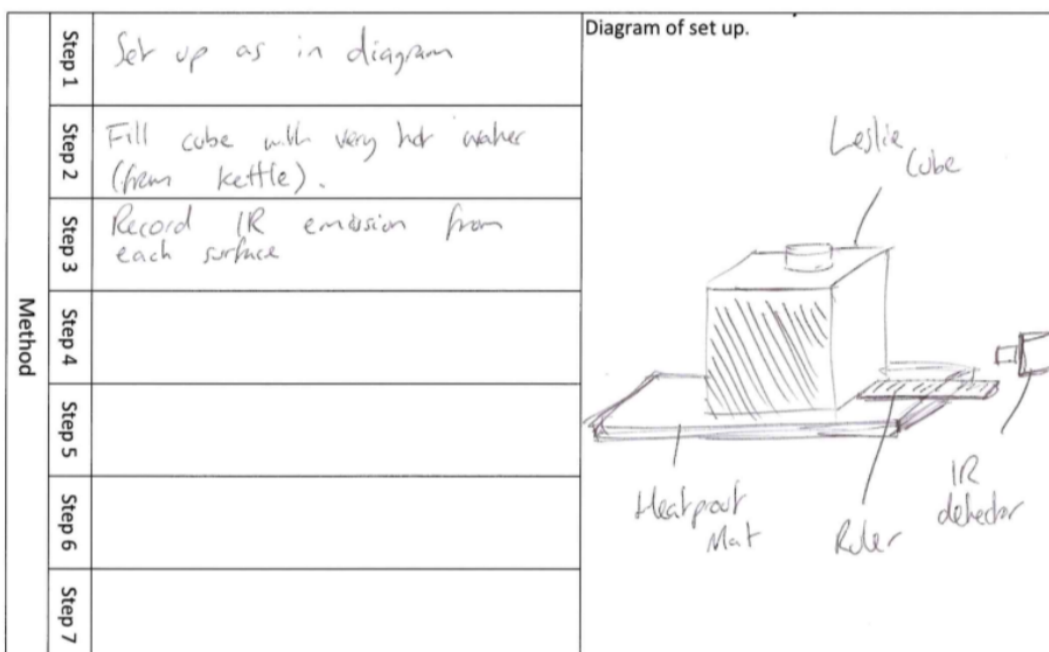 Method
Step 1
Set up as in diagram
Step 2
Fill cube with very hot water
(from kettle).
Step 3
Record IR emission from
each surface
Step 4
Step 5
Step 6
Step 7
Diagram of set up.
Leslie
Cube
Heatproof
Mat
Ruler
IR
detector